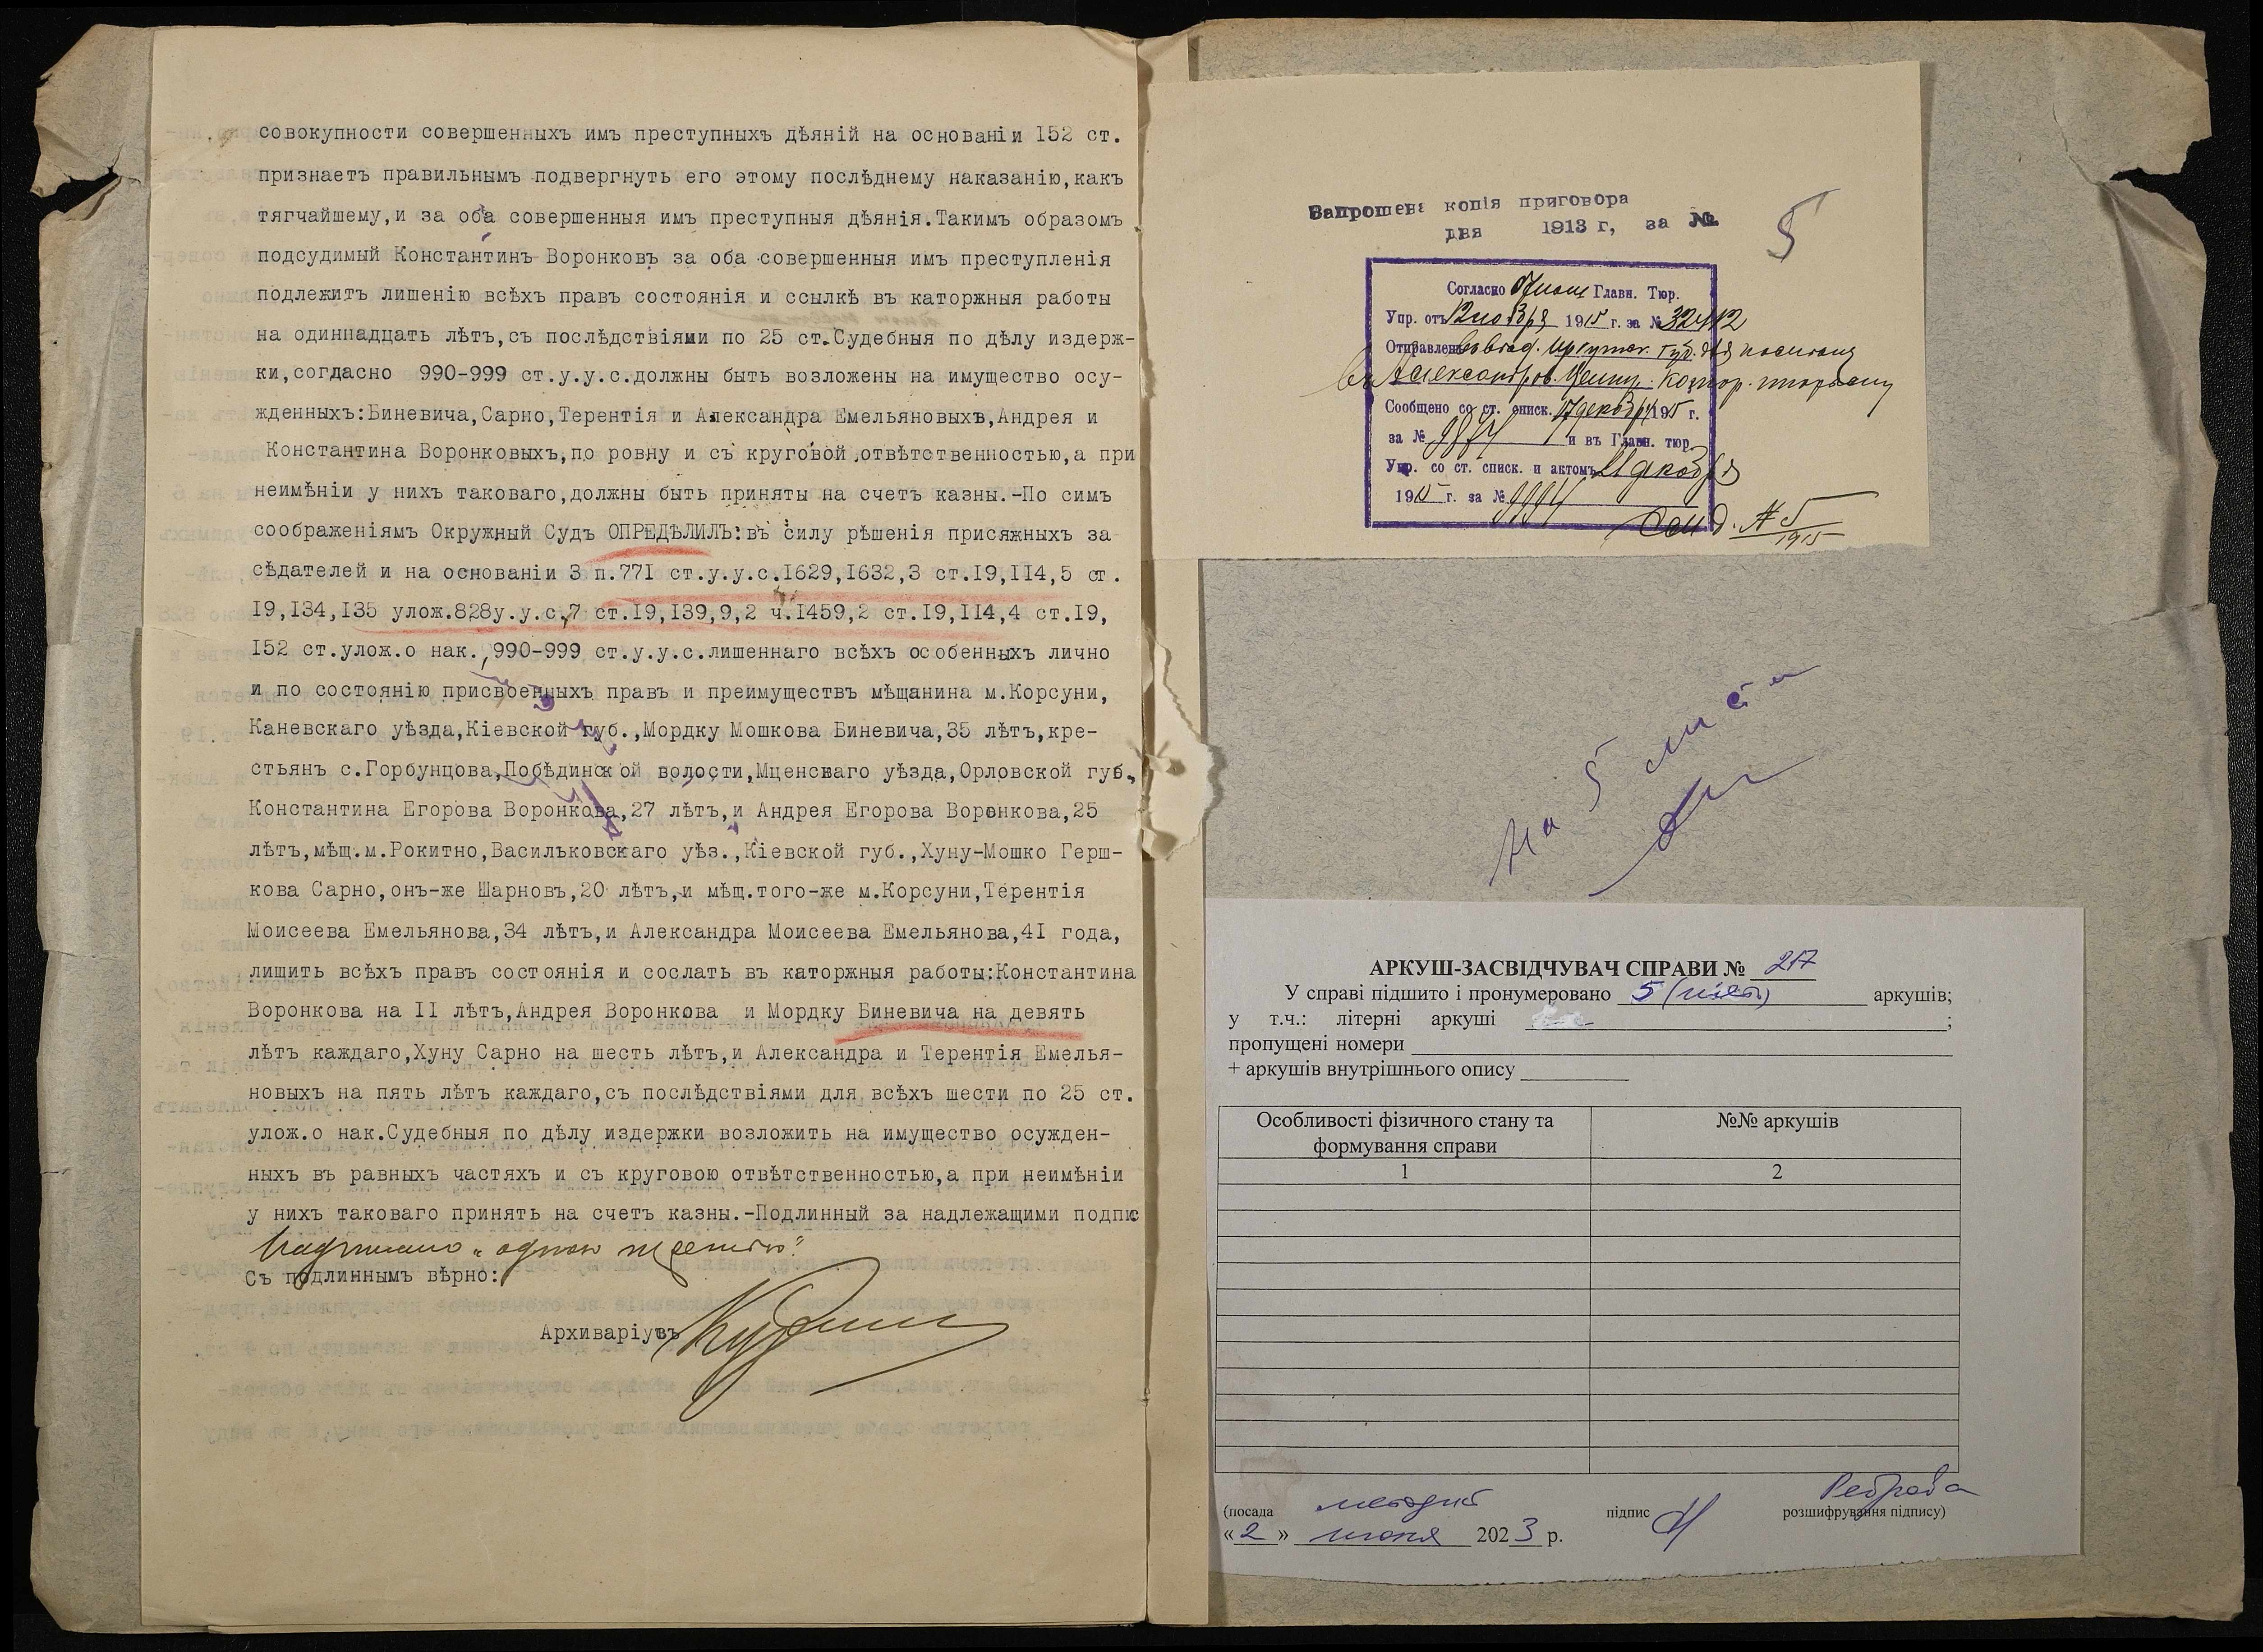 совокупности совершенныхъ имъ преступныхъ дѣяній на основаніи I52 ст.
признаетъ правильнымъ подвергнуть его этому послѣднему наказанію,какъ
тягчайшему,и за оба совершенныя имъ преступныя дѣянія.Такимъ образомъ
подсудимый Константинъ Воронковъ за оба совершенныя имъ преступленія
подлежитъ лишенію всѣхъ правъ состоянія и ссылкѣ въ каторжныя работы
на одиннадцать лѣтъ,съ послѣдствіями по 25 ст.Судебныя по дѣлу издерж-
ки,согдасно 990-999 ст.у.у.с.должны быть возложены на имущество осу-
жденныхъ:Биневича,Сарно,Терентія и Александра Емельяновыхъ,Андрея и
Константина Воронковыхъ,по ровну и съ круговой отвѣтственностью,а при
неимѣніи у нихъ таковаго,должны быть приняты на счетъ казны.-По симъ
соображеніямъ Окружный Судъ ОПРЕДѢЛИЛЪ:въ силу рѣшенія присяжныхъ за
сѣдателей и на основаніи 3 п.77I ст.у.у.с.I629,I632,3 ст.I9,II4,5 ст.
I9,I34,I35 улож.828у.у.с,7 ст.I9,I39,9,2 ч.I459,2 ст.I9,II4,4 ст.I9,
I52 ст.улож.о нак.,990-999 ст.у.у.с.лишеннаго всѣхъ особенныхъ лично
и по состоянію присвоенныхъ правъ и преимуществъ мѣщанина м.Корсуни,
Каневскаго уѣзда,Кіевской губ.,Мордку Мошкова Биневича,35 лѣтъ,кре-
стьянъ с.Горбунцова,Побѣдинской волости,Мценскаго уѣзда,Орловской губ.,
Константина Егорова Воронкова,27 лѣтъ,и Андрея Егорова Воронкова,25
лѣтъ,мѣщ.м.Рокитно,Васильковскаго уѣз.,Кіевской губ.,Хуну-Мошко Герш-
кова Сарно,онъ-же Шарновъ,20 лѣтъ,и мѣщ.того-же м.Корсуни,Терентія
Моисеева Емельянова,34 лѣтъ,и Александра Моисеева Емельянова,4I года,
лишить всѣхъ правъ состоянія и сослать въ каторжныя работы:Константина
Воронкова на II лѣтъ,Андрея Воронкова и Мордку Биневича на девять
лѣтъ каждаго,Хуну Сарно на шесть лѣтъ,и Александра и Терентія Емелья-
новыхъ на пять лѣтъ каждаго,съ послѣдствіями для всѣхъ шести по 25 ст.
улож.о нак.Судебныя по дѣлу издержки возложить на имущество осужден-
ныхъ въ равныхъ частяхъ и съ круговою отвѣтственностью,а при неимѣніи
у нихъ таковаго принять на счетъ казны.-Подлинный за надлежащими подпис
Съ подлиннымъ вѣрно:
Архиваріусъ
Запрошена копія приговора
дня 1913 г, за №
5
Согласно Главн. Тюр.
Упр. отъ 12 ноября 1915 г. за № 32412
Отправленъ въ Иркутск. Губ. для
въ Александров. Центр. Катор. тюрьму
Сообщено со ст. списк. 17 декабря 1915 г.
за № 9874 и въ Главн. тюр.
Упр. со ст. списк. и актомъ 21 декабря
1915 г. за № 9994
№ 5
1915
На 5 листа
АРКУШ-ЗАСВІДЧУВАЧ СПРАВИ № 217
У справі підшито і пронумеровано 5 (п'ять) аркушів;
у т.ч.: літерні аркуші ;
пропущені номери
+ аркушів внутрішнього опису
Особливості фізичного стану та формування справи
№№ аркушів
1 2
(посада методист підпис Реброва розшифрування підпису)
« 2 » июня 2023 р.